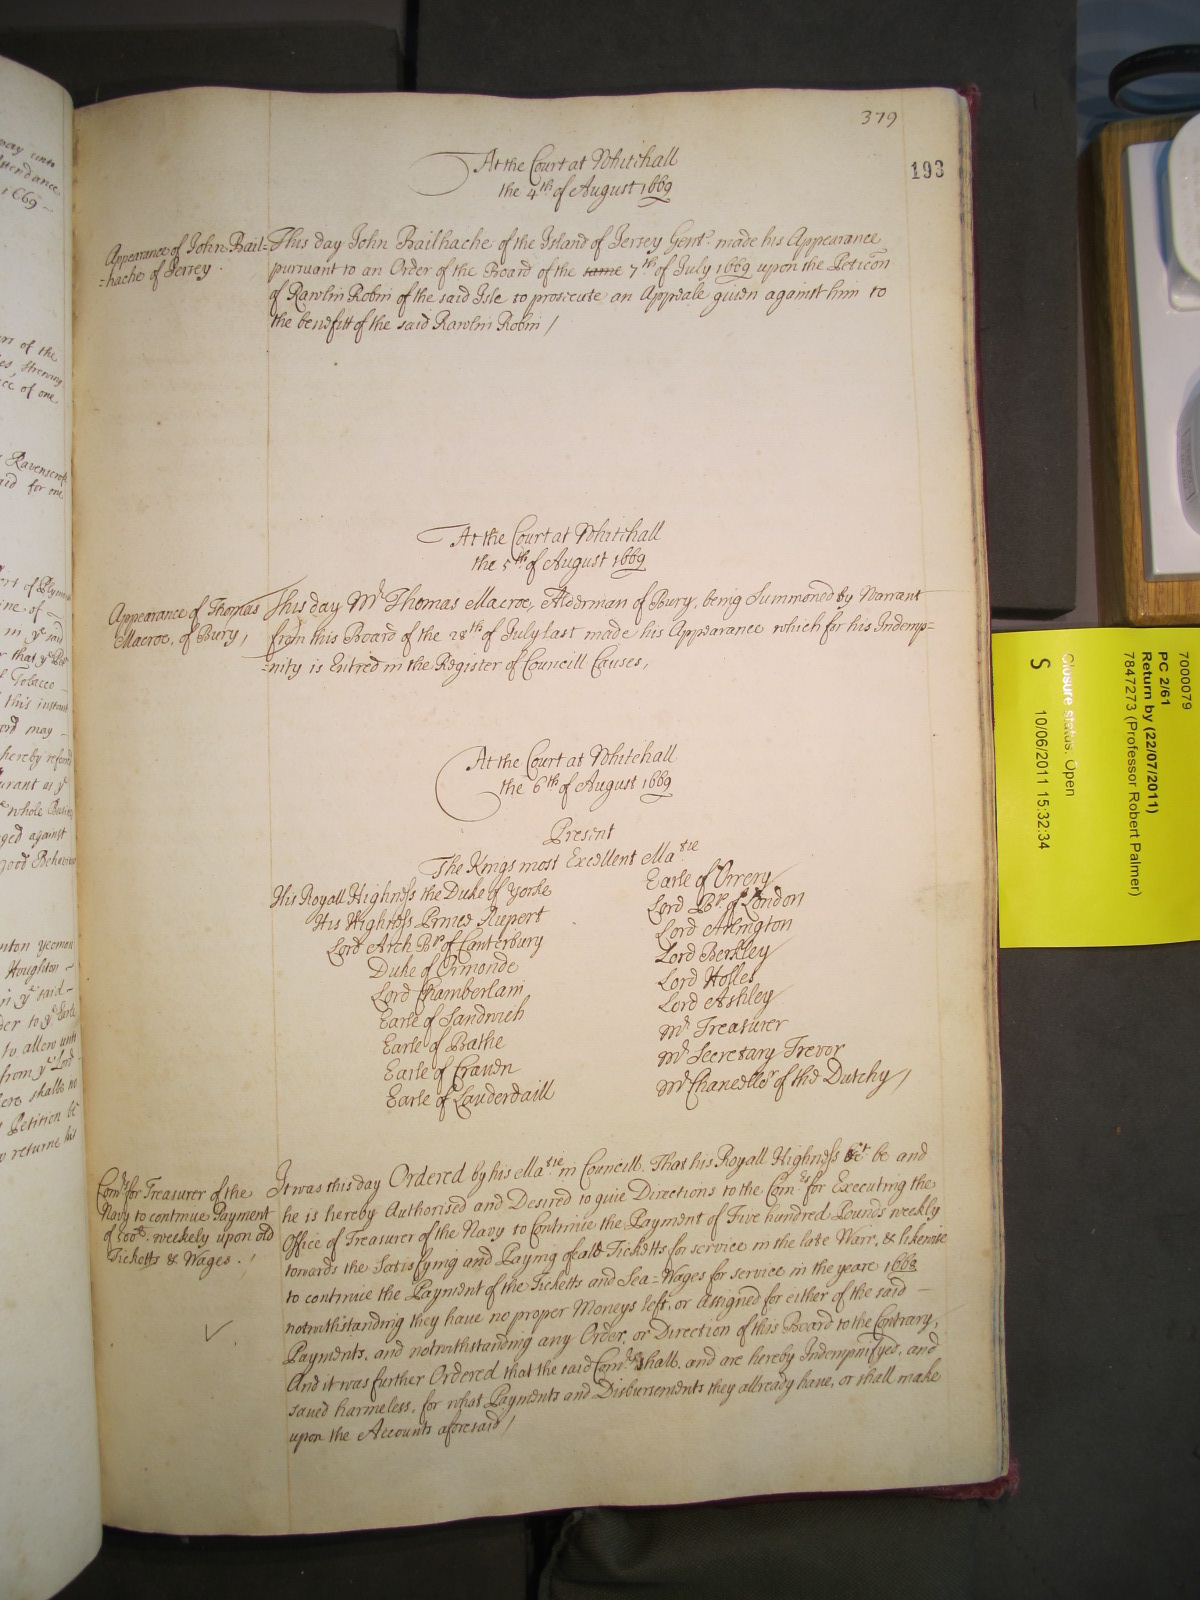 379
193
At the Court at Whitehall
the 4th of August 1669
Appearance of John Bail=
=hache of Jersey.
This day John Bailhache of the Island of Jersey Gent. made his Appearance
pursuant to an Order of the Board of the same 7th of July 1669 upon the Peticōn
of Rawlin Robin of the said Isle to prosecute an Appeale given against him to
the benefitt of the said Rawlin Robin /
At the Court at Whitehall
the 5th of August 1669
Appearance of Thomas
Macroe, of Bury,
This day Mr Thomas Macroe, Alderman of Bury, being Summoned by Warrant
from this Board of the 28th of July last made his Appearance which for his Indemp=
=nity is Entred in the Register of Councill Causes,
At the Court at Whitehall
the 6th of August 1669
Present
The Kings most Excellent Matie
His Royall Highness the Duke of Yorke
His Highness Prince Rupert
Lord Arch Bp of Canterbury
Duke of Ormonde
Lord Chamberlain
Earle of Sandwich
Earle of Bathe
Earle of Craven
Earle of Lauderdaill
Earle of Orrery
Lord Bp. of London
Lord Arlington
Lord Berkley
Lord Holles
Lord Ashley
Mr Treasurer
Mr Secretary Trevor
Mr Chancellor of the Dutchy /
Comrs for Treasurer of the
Navy to continue Payment
of 500li. weekely upon old
Ticketts & Wages.
It was this day Ordered by his Matie in Councill. That his Royall Highness be and
he is hereby Authorised and Desired to give Directions to the Comrs for Executing the
Office of Treasurer of the Navy to Continue the Payment of Five hundred Pounds weekly
towards the Satisfying and Paying of all Ticketts for service in the late Warr, & likewise
to continue the Payment of the Ticketts and Sea=Wages for service in the yeare 1668
notwithstanding they have no proper Moneys left, or assigned for either of the said
Payments, and notwithstanding any Order, or Direction of this Board to the Contrary,
And it was further Ordered that the said Comrs shall, and are hereby Indempnifyed, and
saved harmeless, for what Payments and Disbursements they allready have, or shall make
upon the Accounts aforesaid /
7000079
PC 2/61
Return by (22/07/2011)
7847273 (Professor Robert Palmer)
Closure status: Open
S 10/06/2011 15:32:34